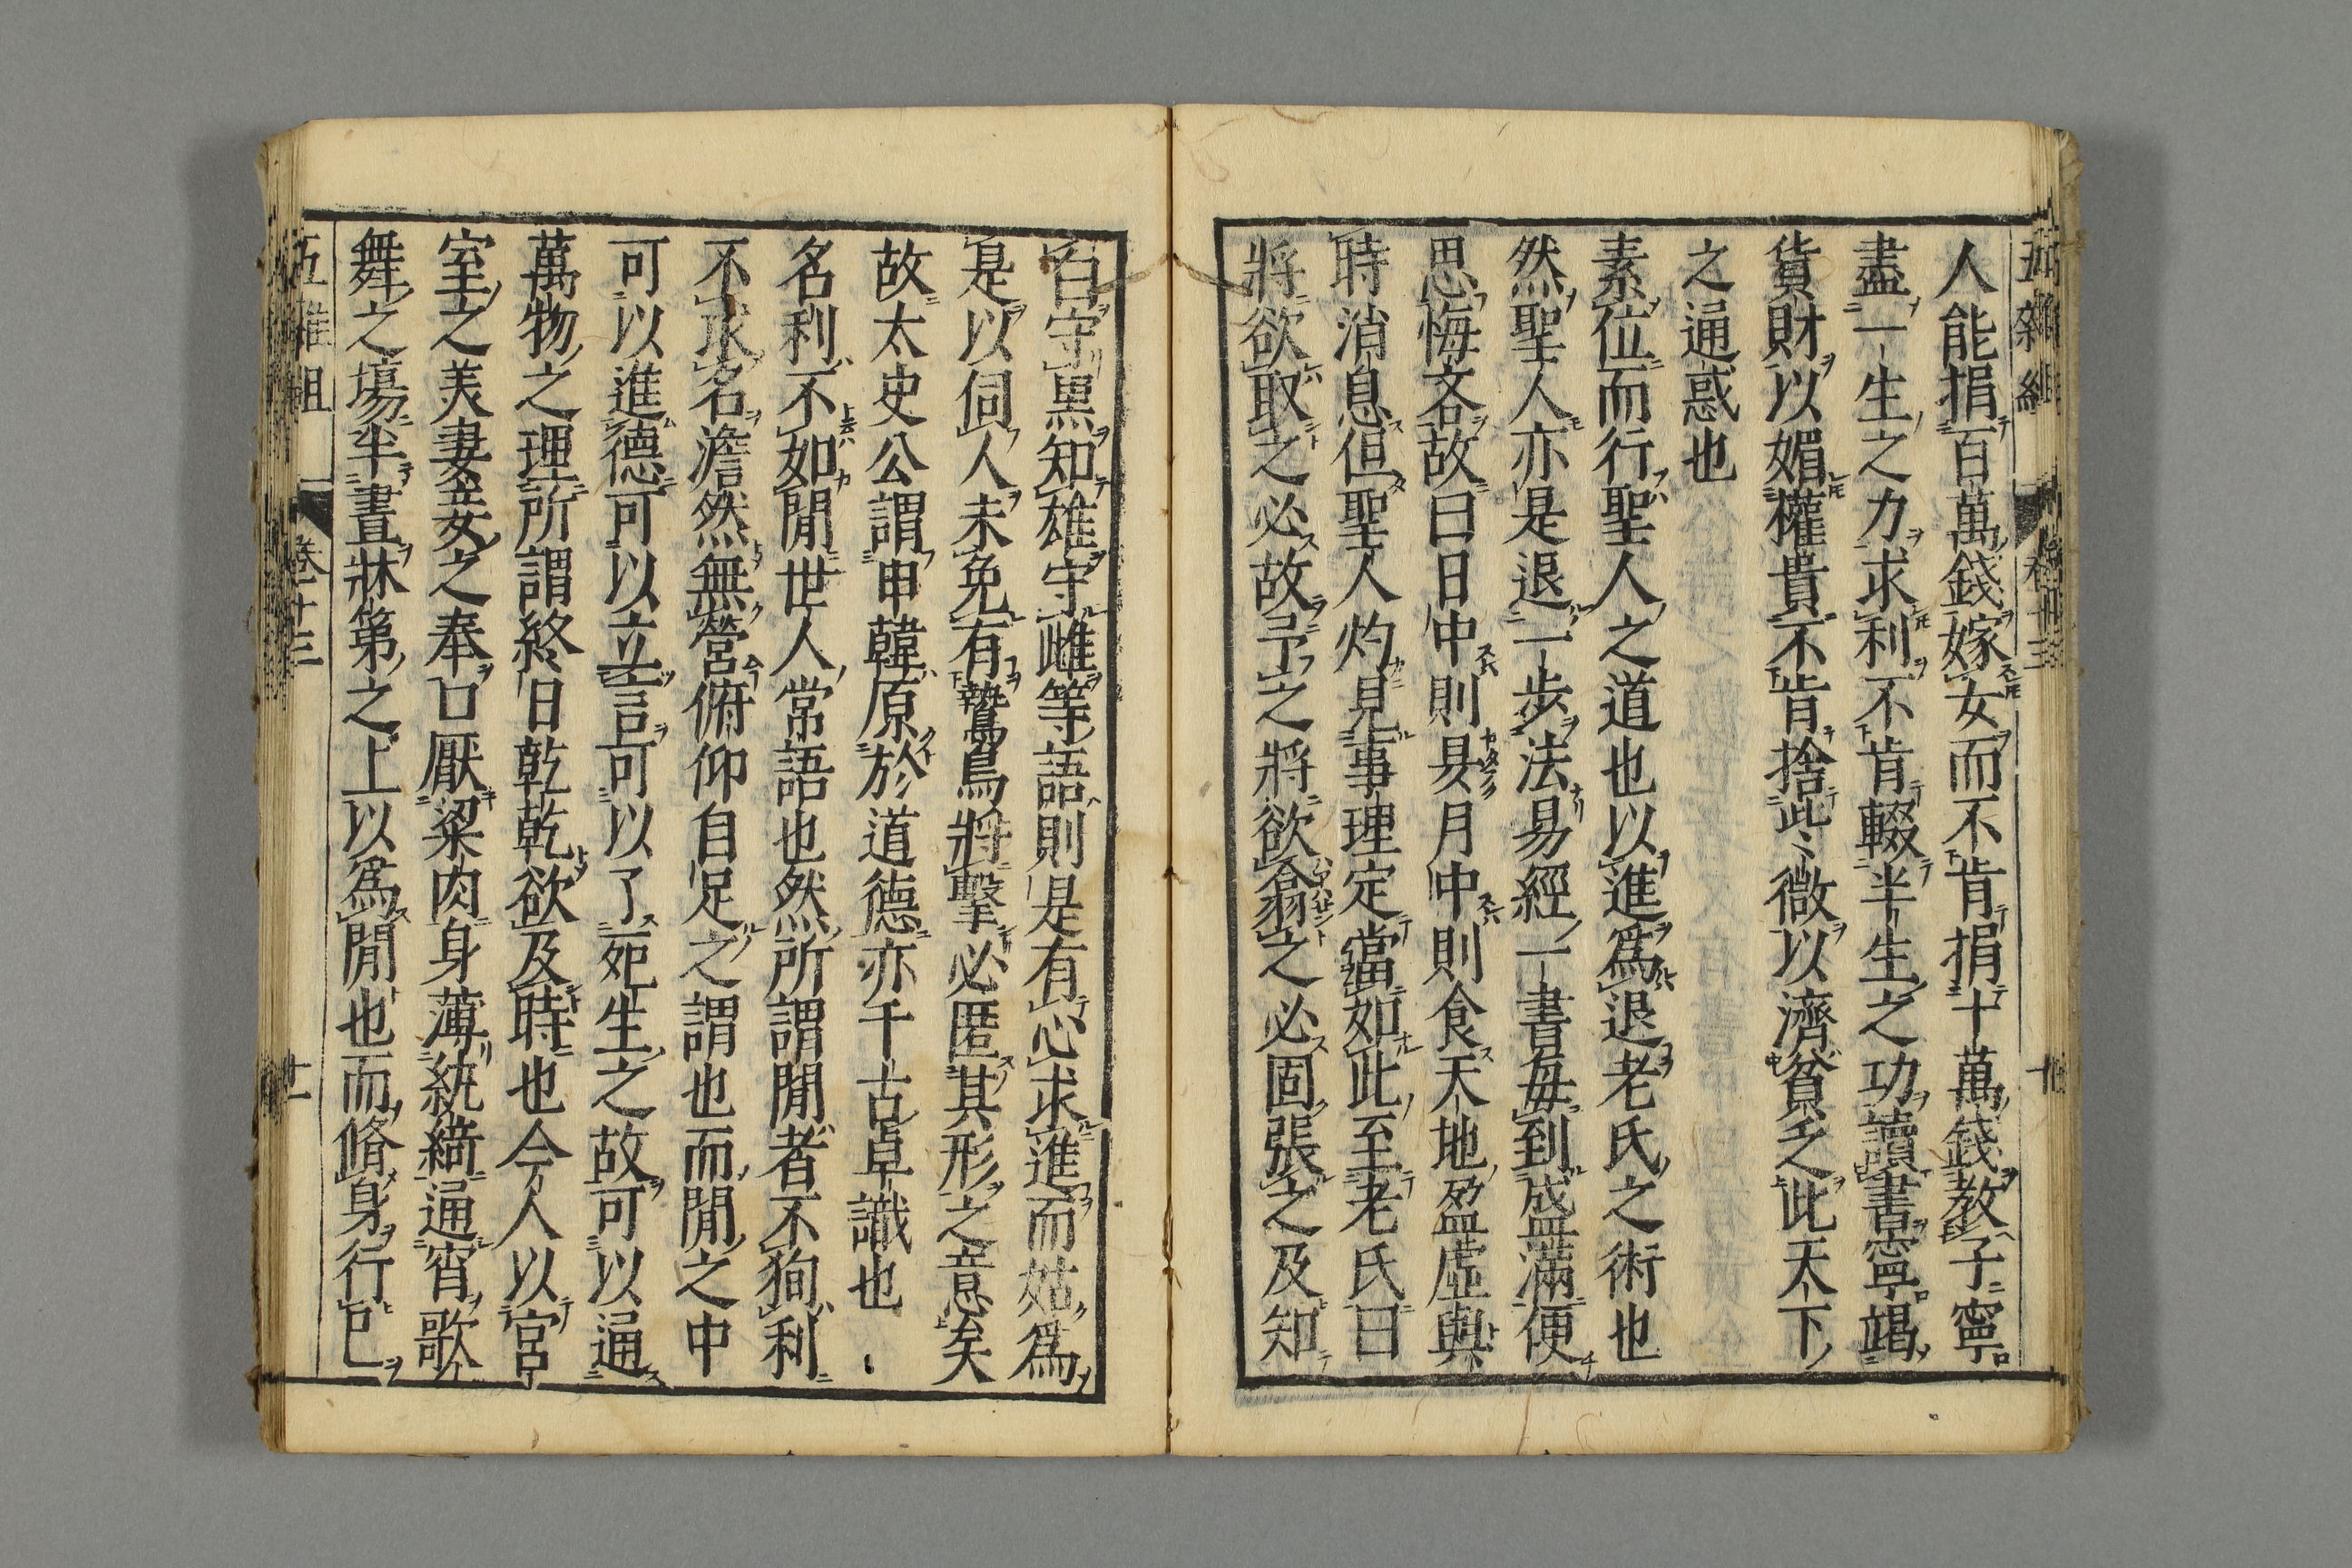 五雜組
卷十三
人能捐百萬錢嫁女而不肯捐十萬錢教子寧
盡一生之力求利不肯輟半生之功讀書寧竭
貨財以媚權貴不肯捨些微以濟貧乏此天下
之通惑也
素位而行聖人之道也以進爲退老氏之術也
然聖人亦是退一步法易經一書毎到盛滿便
思悔吝故曰日中則昃月中則食天地盈虚與
時消息但聖人灼見事理定當如此至老氏曰
將欲取之必故予之將欲翕之必固張之及知
白守黒知雄守雌等語則是有心求進而姑爲
是以伺人未免有鷙鳥將擊必匿其形之意矣
故太史公謂申韓原於道德亦千古卓識也
名利不如閒世人常語也然所謂閒者不狥利
不求名澹然無營俯仰自足之謂也而閒之中
可以進德可以立言可以了死生之故可以通
萬物之理所謂終日乾乾欲及時也今人以宮
室之美妻妾之奉口厭粱肉身薄紈綺通宵歌
舞之塲半晝牀第之上以爲閒也而脩身行己
五雜組
卷十三
廿一